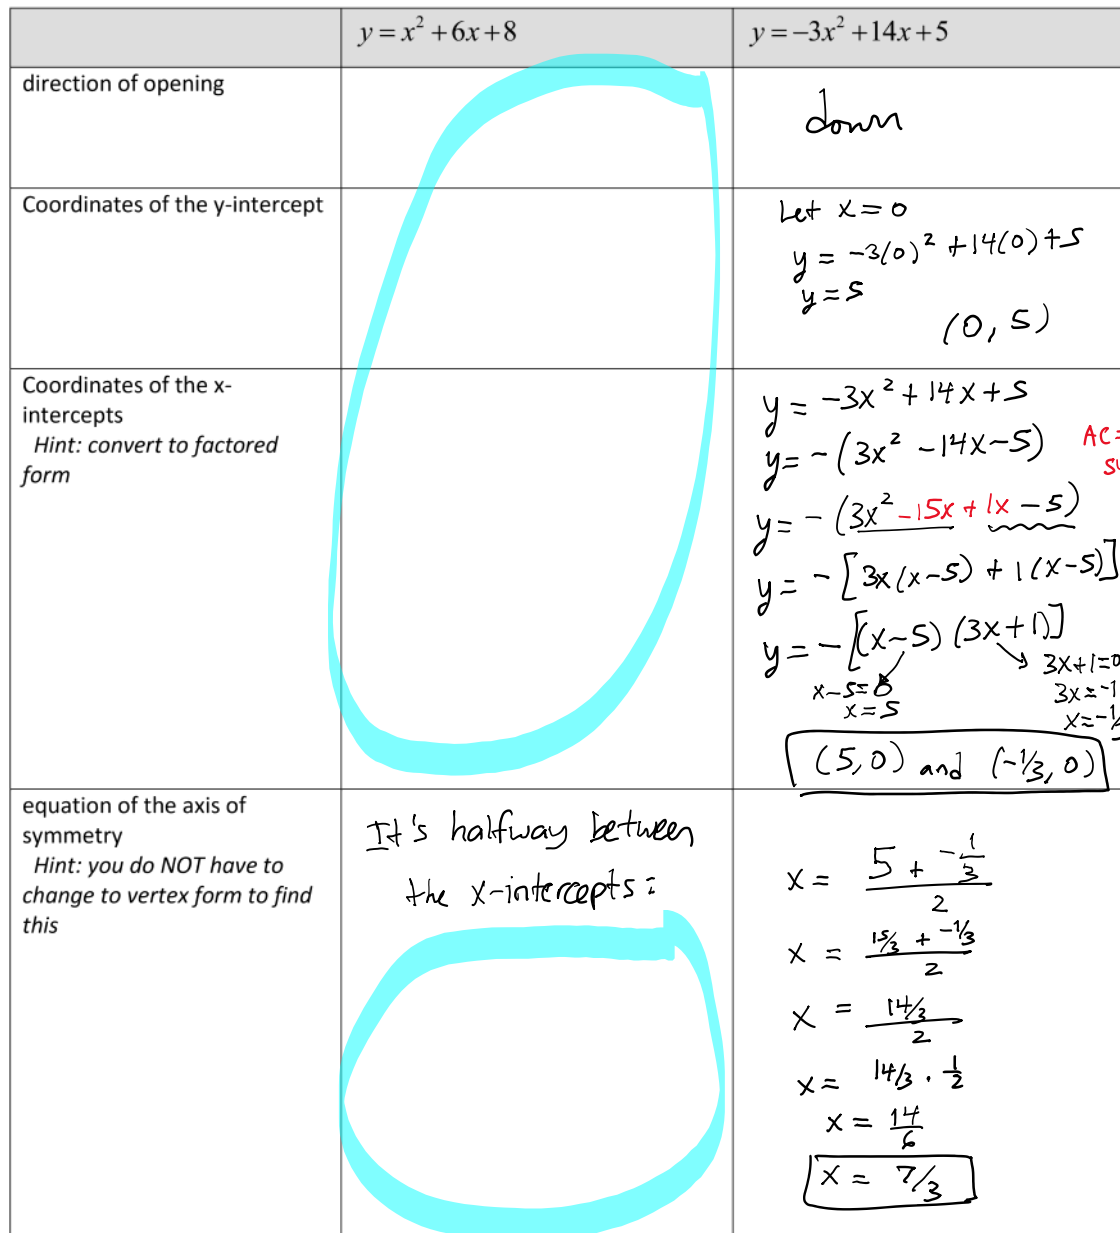 y = x² + 6x + 8
y = −3x² + 14x + 5
direction of opening
down
Coordinates of the y-intercept
Let x = 0
y = -3(0)² + 14(0) + 5
y = 5
(0, 5)
Coordinates of the x-
intercepts
Hint: convert to factored
form
y = -3x² + 14x + 5
y = -(3x² - 14x - 5)
AC=
y = -(3x² - 15x + 1x - 5)
y = -[3x(x-5) + 1(x-5)]
y = -[(x-5)(3x+1)]
x-5=0
x=5
3x+1=0
3x=-1
(5, 0) and (-1/3, 0)
equation of the axis of
symmetry
Hint: you do NOT have to
change to vertex form to find
this
It's halfway between
the x-intercepts:
x = (5 + -1/3)/2
x = (15/3 + -1/3)/2
x = (14/3)/2
x = 14/3 · 1/2
x = 14/6
x = 7/3